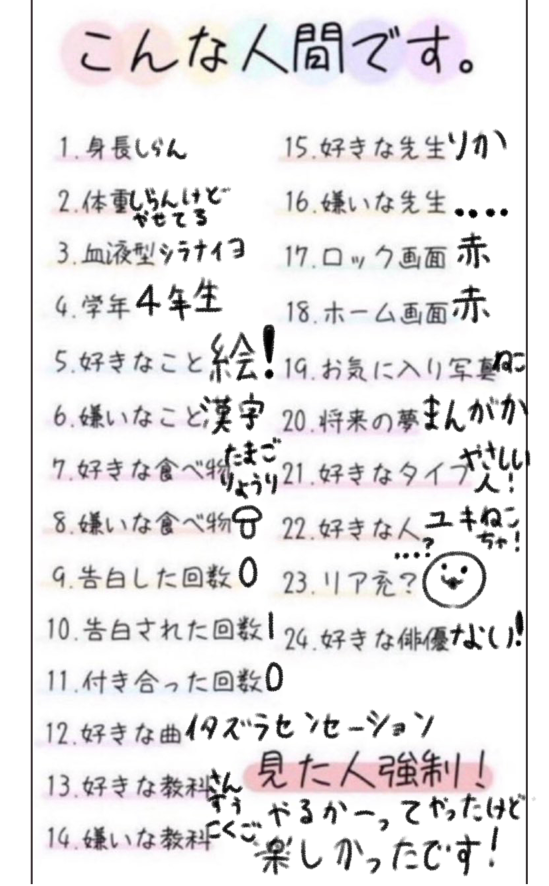 こんな人間です。
1.身長しらん
2.体重しらんけど
やせてる
3.血液型シラナイヨ
4.学年4年生
5.好きなこと絵!
6.嫌いなこと漢字
7.好きな食べ物たまご
りょうり
8.嫌いな食べ物
9.告白した回数0
10.告白された回数1
11.付き合った回数0
12.好きな曲イタズラセンセーション
13.好きな教科さん
すう
14.嫌いな教科こくご
15.好きな先生りか
16.嫌いな先生....
17.ロック画面 赤
18.ホーム画面赤
19.お気に入り写真ねこ
20.将来の夢まんがか
21.好きなタイプやさしい
人!
22.好きな人ユキねこ
ちゃ!
...?
23.リア充?
24.好きな俳優ない!
見た人強制!
やるかーってやったけど
楽しかったです!